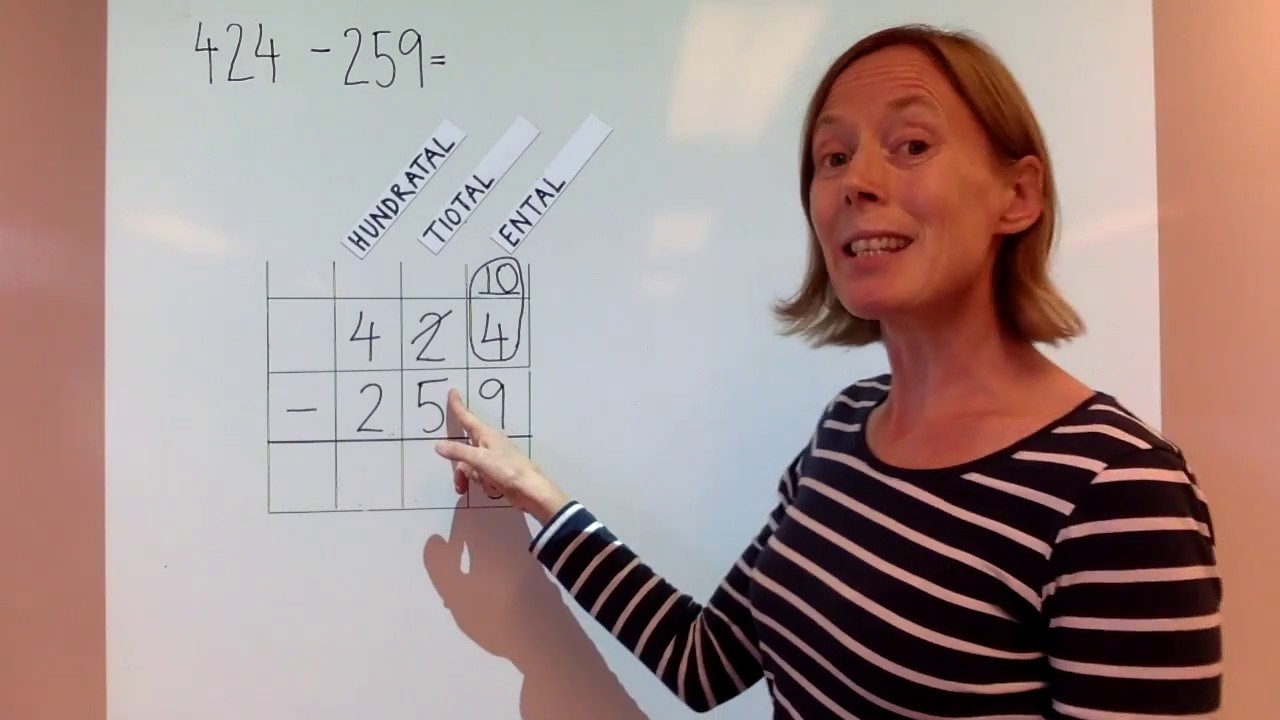 424 - 259=
HUNDRATAL TIOTAL ENTAL
10
4 2 4
- 2 5 9